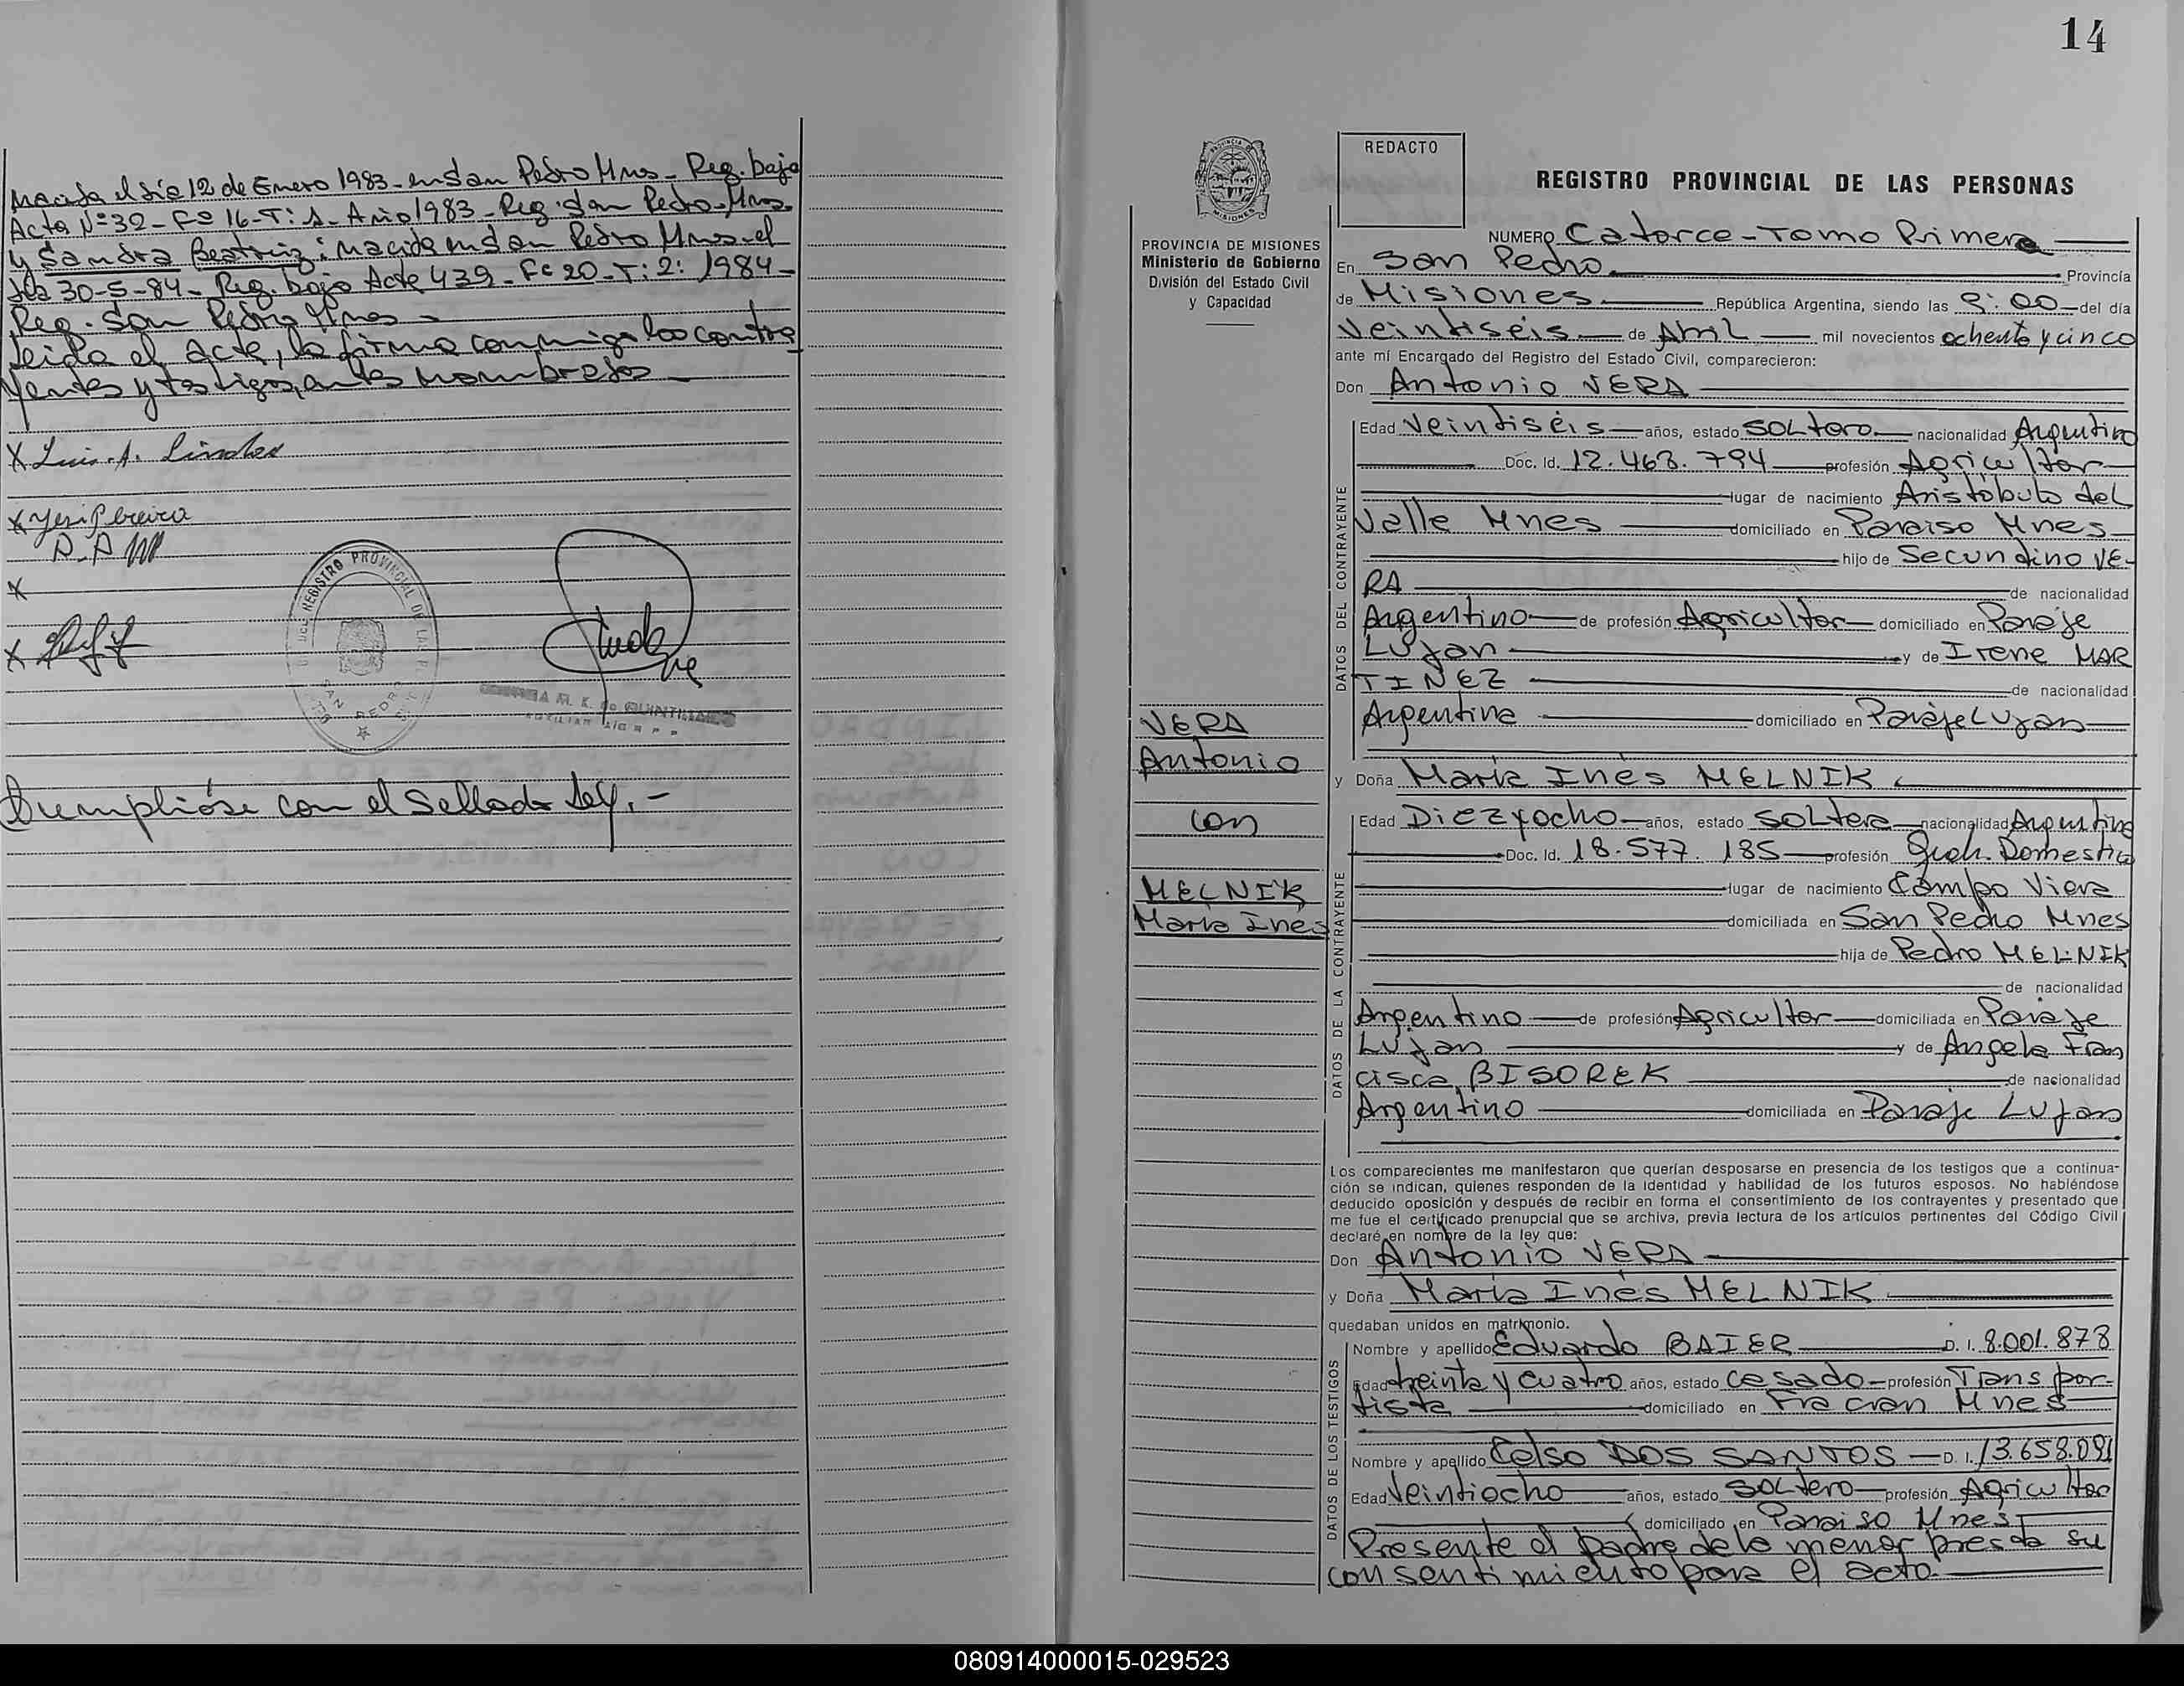 nacida el día 12 de Enero 1983 - en San Pedro Mnes - Reg. bajo
Acta Nº 32 - Fº 16 - T: 1 - Año 1983 - Reg. San Pedro - Mnes.
y Sandra Beatriz: nacida en San Pedro Mnes - el
día 30-5-84 - Reg. bajo Acta 439 - Fº 20 - T: 2: 1984 -
Reg. San Pedro Mnes -
leida el Acta, la firma conmigo los contra
yentes y testigos, antes nombrados
X Luis. A.
X
X
X
REGISTRO PROVINCIAL DE LAS
SAN PEDRO
M. K. de QUINTILIANO
AUXILIAR
Cumplióse con el Sellado Ley. -
14
PROVINCIA DE MISIONES
Ministerio de Gobierno
División del Estado Civil
y Capacidad
VERA
Antonio
con
MELNIK
María Inés
REDACTO
REGISTRO PROVINCIAL DE LAS PERSONAS
NUMERO Catorce - Tomo Primero
En San Pedro Provincia
de Misiones República Argentina, siendo las 9:00 del día
Veintiséis de Abril mil novecientos ochenta y cinco
ante mí Encargado del Registro del Estado Civil, comparecieron:
Don Antonio VERA
DATOS DEL CONTRAYENTE
Edad Veintiséis años, estado SOLtero nacionalidad Argentino
Doc. Id. 12.463.794 profesión Agricultor
lugar de nacimiento Aristóbulo del
Valle Mnes domiciliado en Paraiso Mnes
hijo de Secundino VE-
RA de nacionalidad
Argentino de profesión Agricultor domiciliado en Paraje
Lujan y de Irene MAR
TINEZ de nacionalidad
Argentina domiciliado en Paraje Lujan
y Doña María Inés MELNIK
DATOS DE LA CONTRAYENTE
Edad Diezyocho años, estado SOLtera nacionalidad Argentina
Doc. Id. 18.577.185 profesión Domestica
lugar de nacimiento Campo Viera
domiciliada en San Pedro Mnes
hija de Pedro MELNIK
de nacionalidad
Argentino de profesión Agricultor domiciliada en Paraje
Lujan y de Angela Fran
cisca BISOREK de nacionalidad
Argentino domiciliada en Paraje Lujan
Los comparecientes me manifestaron que querían desposarse en presencia de los testigos que a continua-
ción se indican, quienes responden de la identidad y habilidad de los futuros esposos. No habiéndose
deducido oposición y después de recibir en forma el consentimiento de los contrayentes y presentado que
me fue el certificado prenupcial que se archiva, previa lectura de los artículos pertinentes del Código Civil
declaré en nombre de la ley que:
Don Antonio VERA
y Doña María Inés MELNIK
quedaban unidos en matrimonio.
DATOS DE LOS TESTIGOS
Nombre y apellido Eduardo BAIER D. I. 8.001.878
Edad treinta y cuatro años, estado casado profesión Transpor-
tista domiciliado en Fracran Mnes
Nombre y apellido Celso DOS SANTOS D. I. 13.658.091
Edad Veintiocho años, estado SOLtero profesión Agricultor
domiciliado en Paraiso Mnes
Presente el padre de la menor presta su
consentimiento para el acto.
080914000015-029523